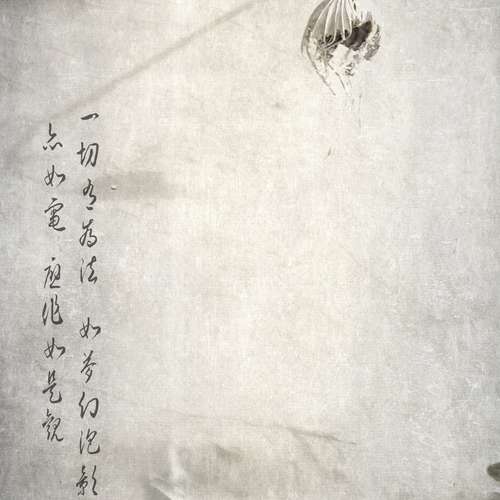 一切有為法 如夢幻泡影
亦如電 應作如是觀